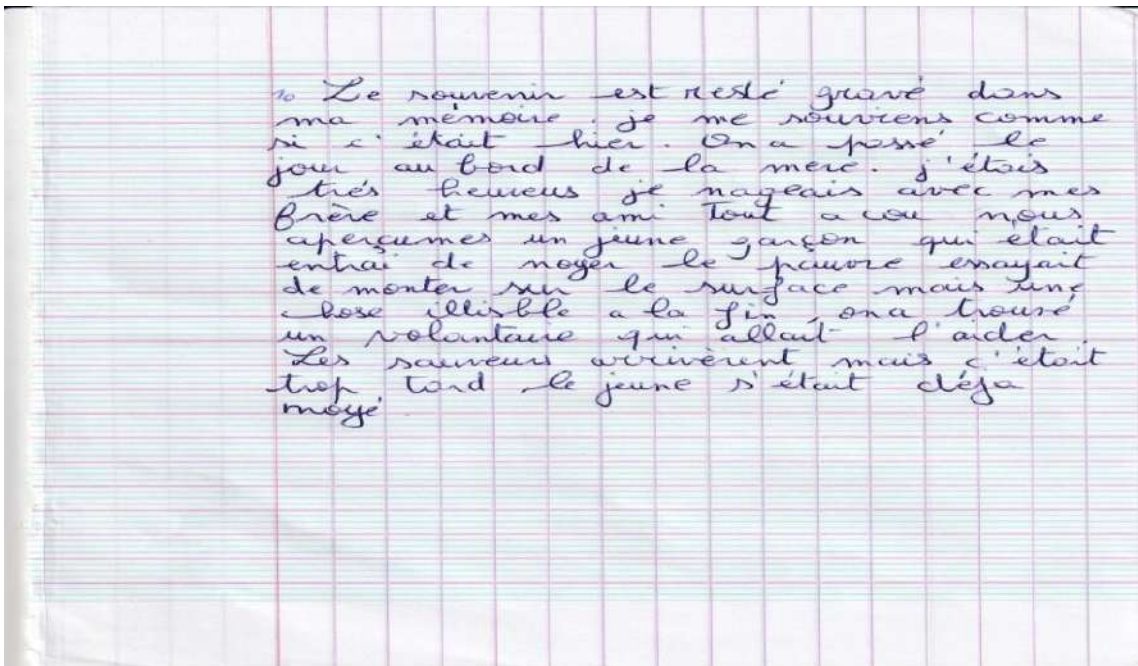 10 Le souvenir est resté gravé dans
ma mémoire. je me souviens comme
si c'était hier. On a passé le
jour au bord de la mere. j'étais
trés heureus je nageais avec mes
frère et mes ami Tout a cou nous
aperçumes un jeune garçon qui était
entrai de noyer le pauvre essayait
de monter sur le surface mais une
chose illisble a la fin, on a trouvé
un volontaire qui allait l'aider.
Les sauveurs arrivèrent mais c'était
trop tard le jeune s'était déja
noyé